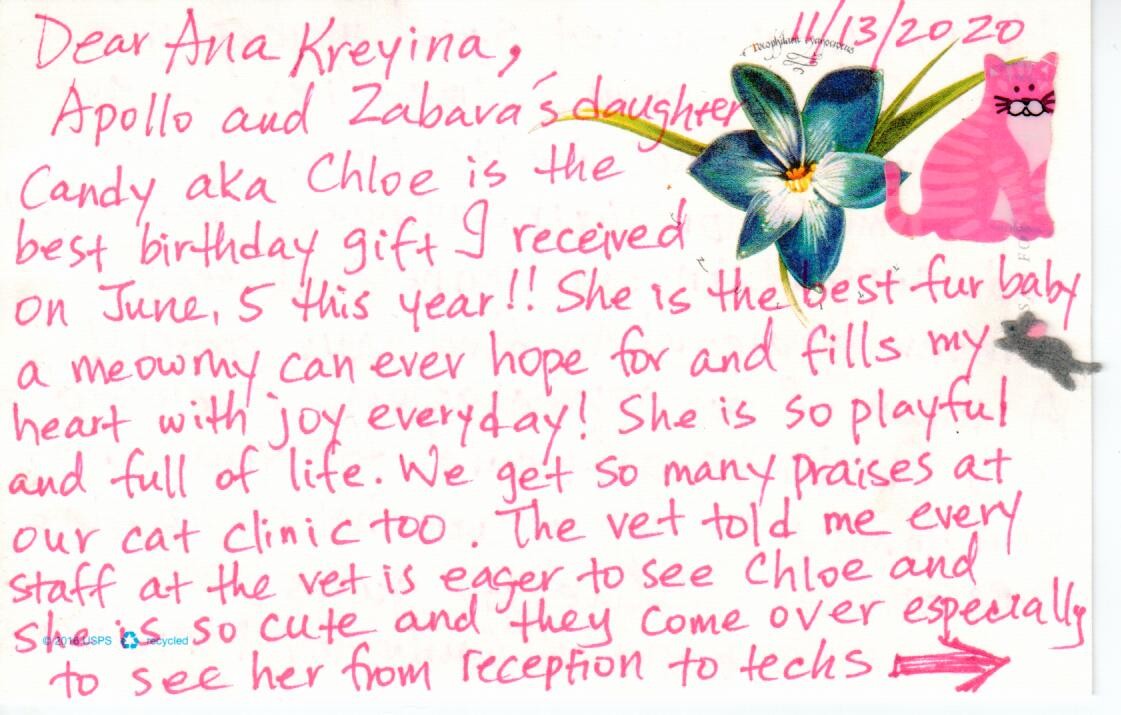 11/13/2020
Dear Ana Kreyina,
Apollo and Zabava's daughter
Candy aka Chloe is the
best birthday gift I received
on June, 5 this year!! She is the best fur baby
a meowmy can ever hope for and fills my
heart with joy everyday! She is so playful
and full of life. We get so many praises at
our cat clinic too. The vet told me every
staff at the vet is eager to see Chloe and
she is so cute and they come over especially
© 2016 USPS recycled
to see her from reception to techs